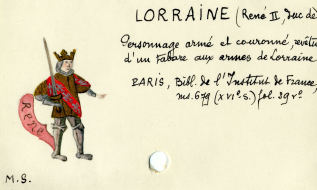 LORRAINE (René II, duc de
Personnage armé et couronné, revêtu
d'un tabare aux armes de Lorraine
PARIS, Bibl. de l'Institut de France,
ms. 679 (XVIe s.) fol. 39 vº
René
M.S.